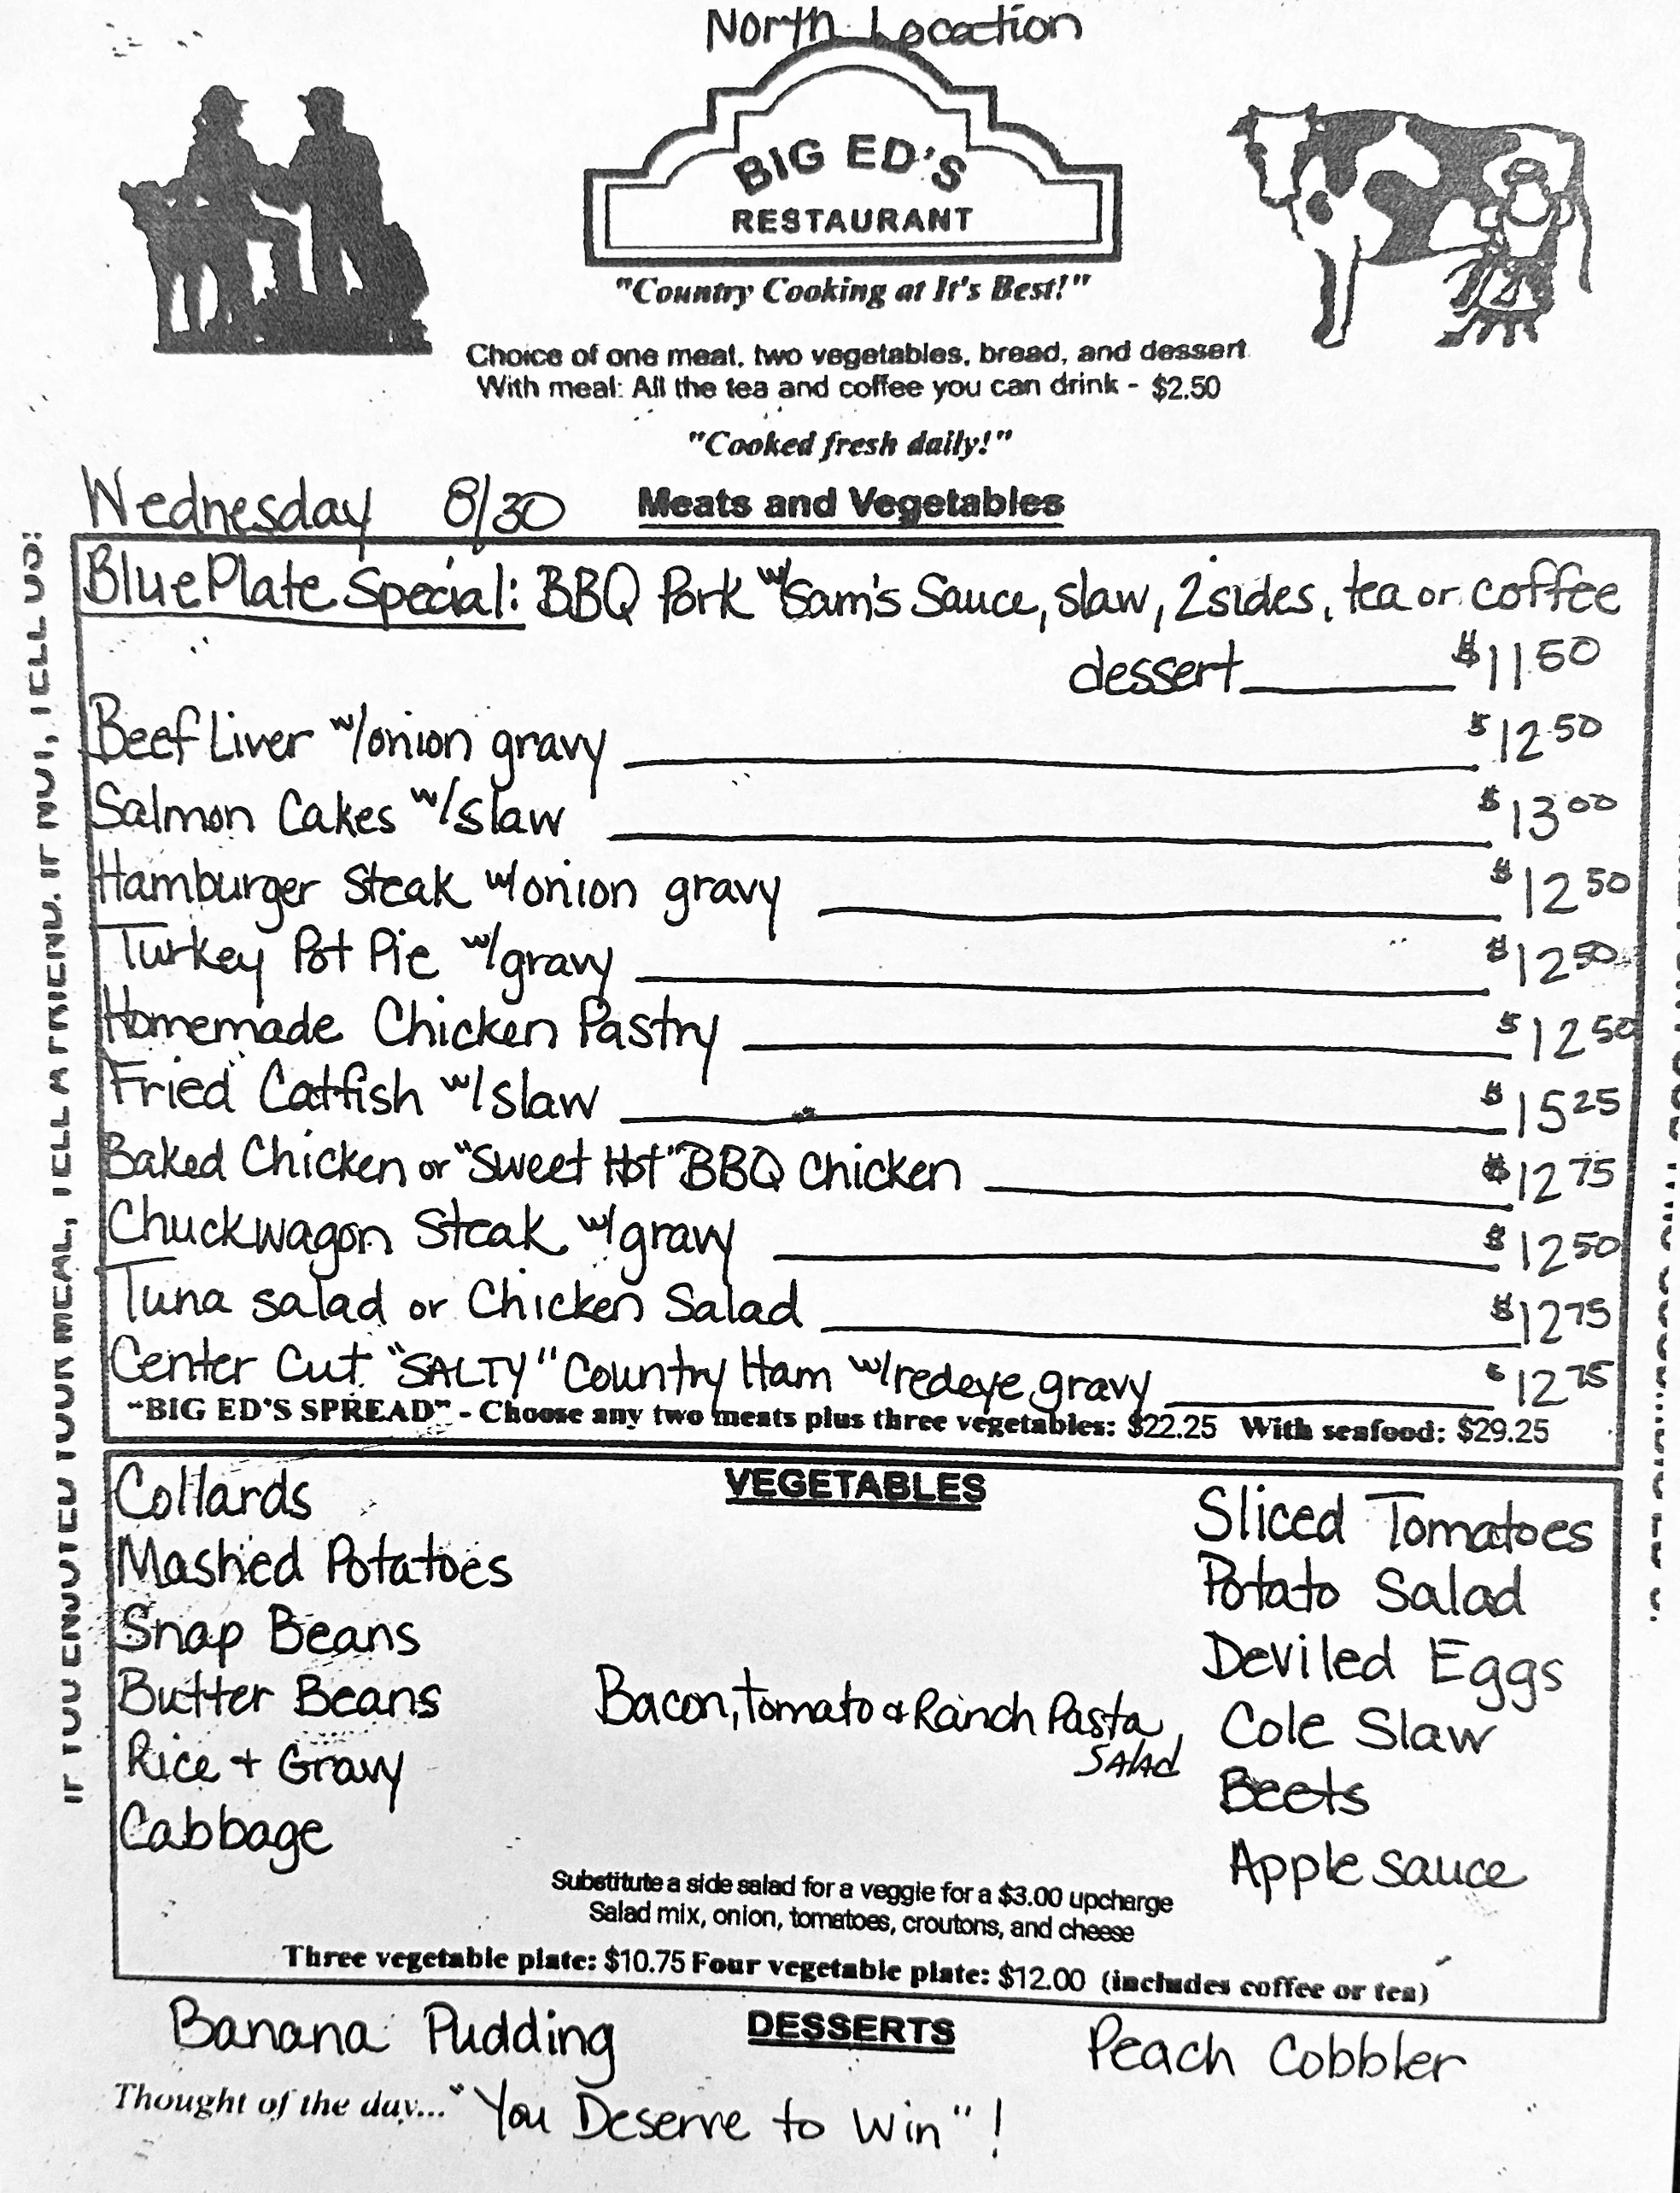 North Location
BIG ED'S
RESTAURANT
"Country Cooking at It's Best!"
Choice of one meat, two vegetables, bread, and dessert
With meal: All the tea and coffee you can drink - $2.50
"Cooked fresh daily!"
Wednesday 8/30 Meats and Vegetables
Blue Plate Special: BBQ Pork w/ Sam's Sauce, slaw, 2 sides, tea or coffee
dessert $11.50
Beef Liver w/onion gravy $12.50
Salmon Cakes w/slaw $13 00
Hamburger Steak w/onion gravy $12 50
Turkey Pot Pie w/gravy $12 50
Homemade Chicken Pastry $12 50
Fried Catfish w/slaw $15 25
Baked Chicken or "Sweet Hot" BBQ Chicken $12 75
Chuckwagon Steak w/gravy $12 50
Tuna salad or Chicken Salad $12 75
Center Cut "SALTY" Country Ham w/redeye gravy $12 75
"BIG ED'S SPREAD" - Choose any two meats plus three vegetables: $22.25 With seafood: $29.25
VEGETABLES
Collards
Mashed Potatoes
Snap Beans
Butter Beans
Rice + Gravy
Cabbage
Bacon, Tomato & Ranch Pasta
SALAd
Sliced Tomatoes
Potato Salad
Deviled Eggs
Cole Slaw
Beets
Apple Sauce
Substitute a side salad for a veggie for a $3.00 upcharge
Salad mix, onion, tomatoes, croutons, and cheese
Three vegetable plate: $10.75 Four vegetable plate: $12.00 (includes coffee or tea)
Banana Pudding DESSERTS Peach Cobbler
Thought of the day... "You Deserve to Win"!
IF YOU ENJOYED YOUR MEAL, TELL A FRIEND. IF NOT, TELL US!